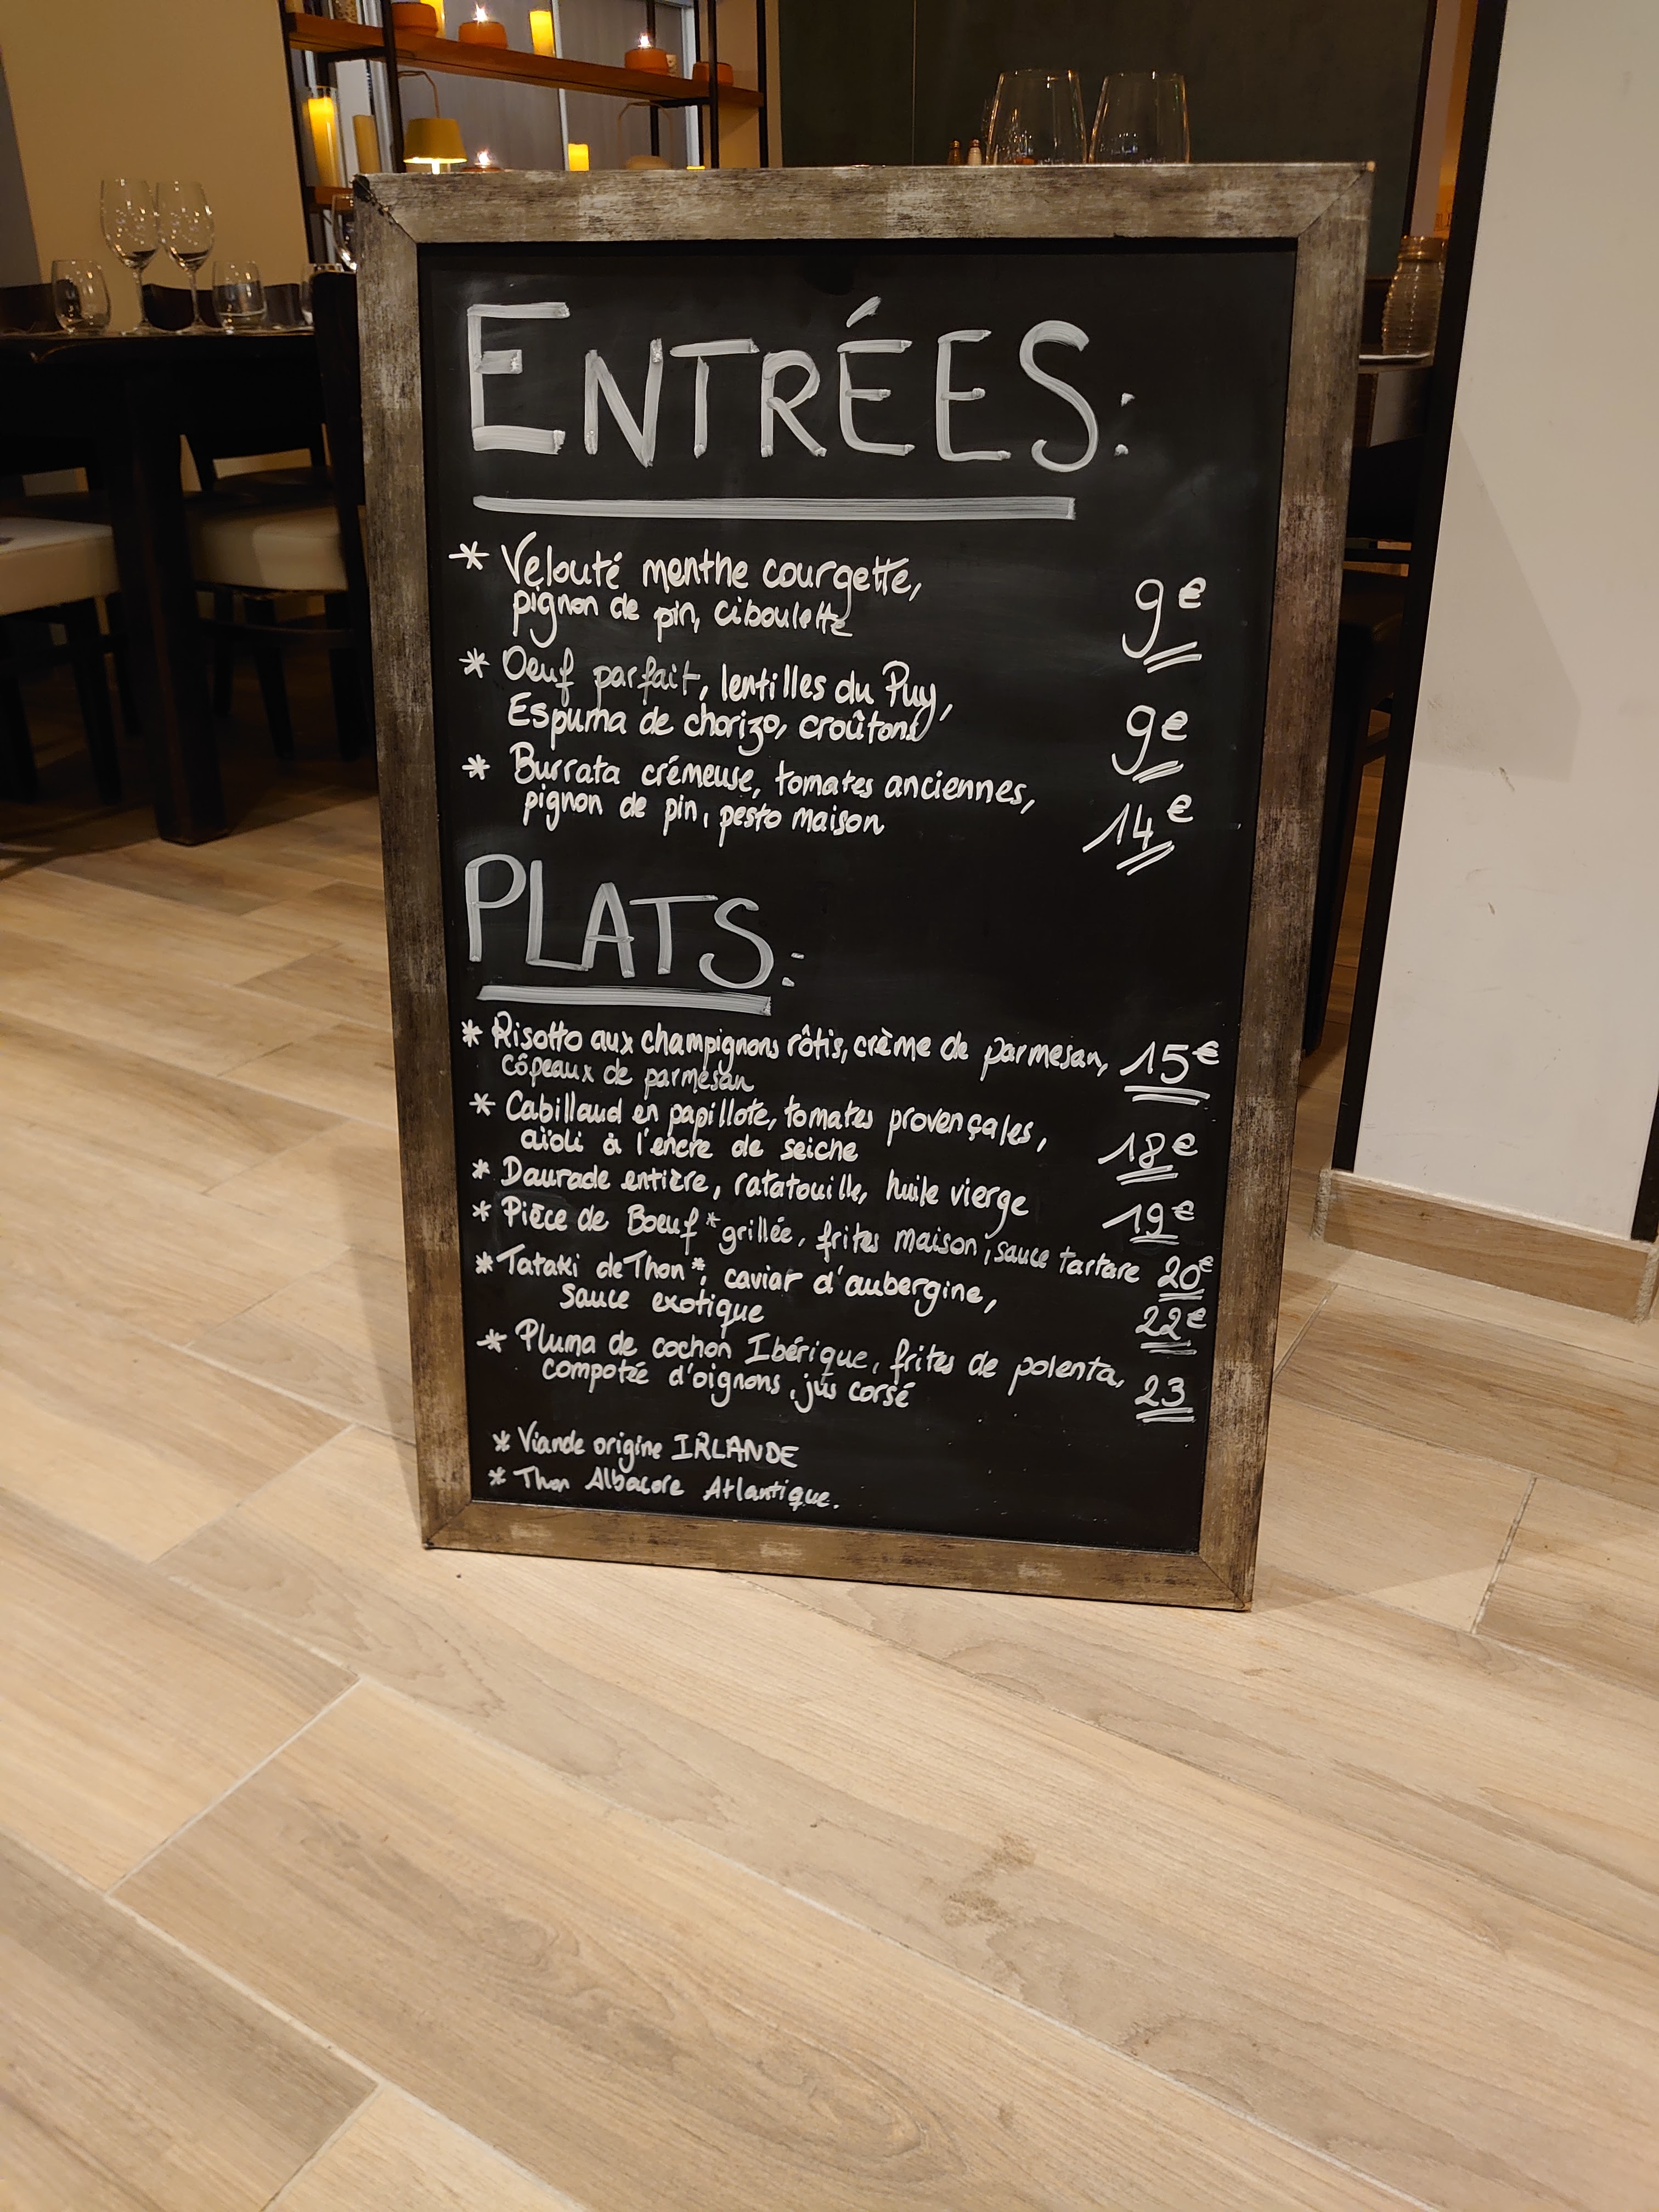 ENTRÉES:
* Velouté menthe courgette,
pignon de pin, ciboulette 9€
* Oeuf parfait, lentilles du Puy,
Espuma de chorizo, croûtons 9€
* Burrata crémeuse, tomates anciennes,
pignon de pin, pesto maison 14€
PLATS:
* Risotto aux champignons rôtis, crème de parmesan, 15€
côpeaux de parmesan
* Cabillaud en papillote, tomates provençales,
aïoli à l'encre de seiche 18€
* Daurade entière, ratatouille, huile vierge 19€
* Pièce de Boeuf* grillée, frites maison, sauce tartare 20€
* Tataki de Thon*, caviar d'aubergine,
sauce exotique 22€
* Pluma de cochon Ibérique, frites de polenta,
compotée d'oignons, jus corsé 23
* Viande origine IRLANDE
* Thon Albacore Atlantique.